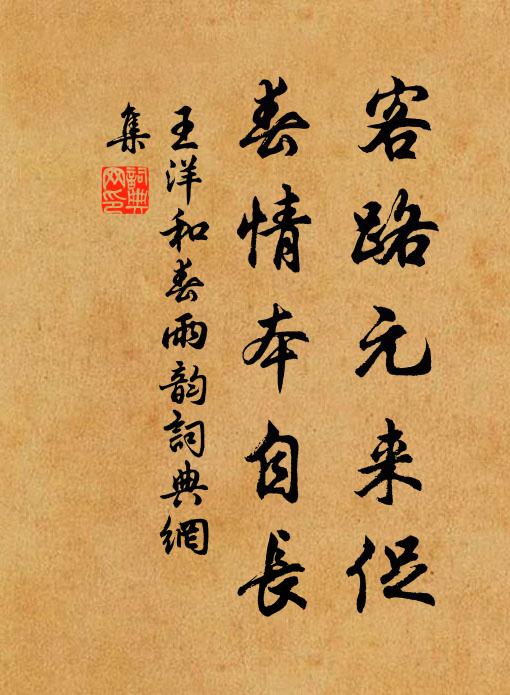 客路元来促
春情本自長
王洋和春雨韵詞典網
集
詞典
网印